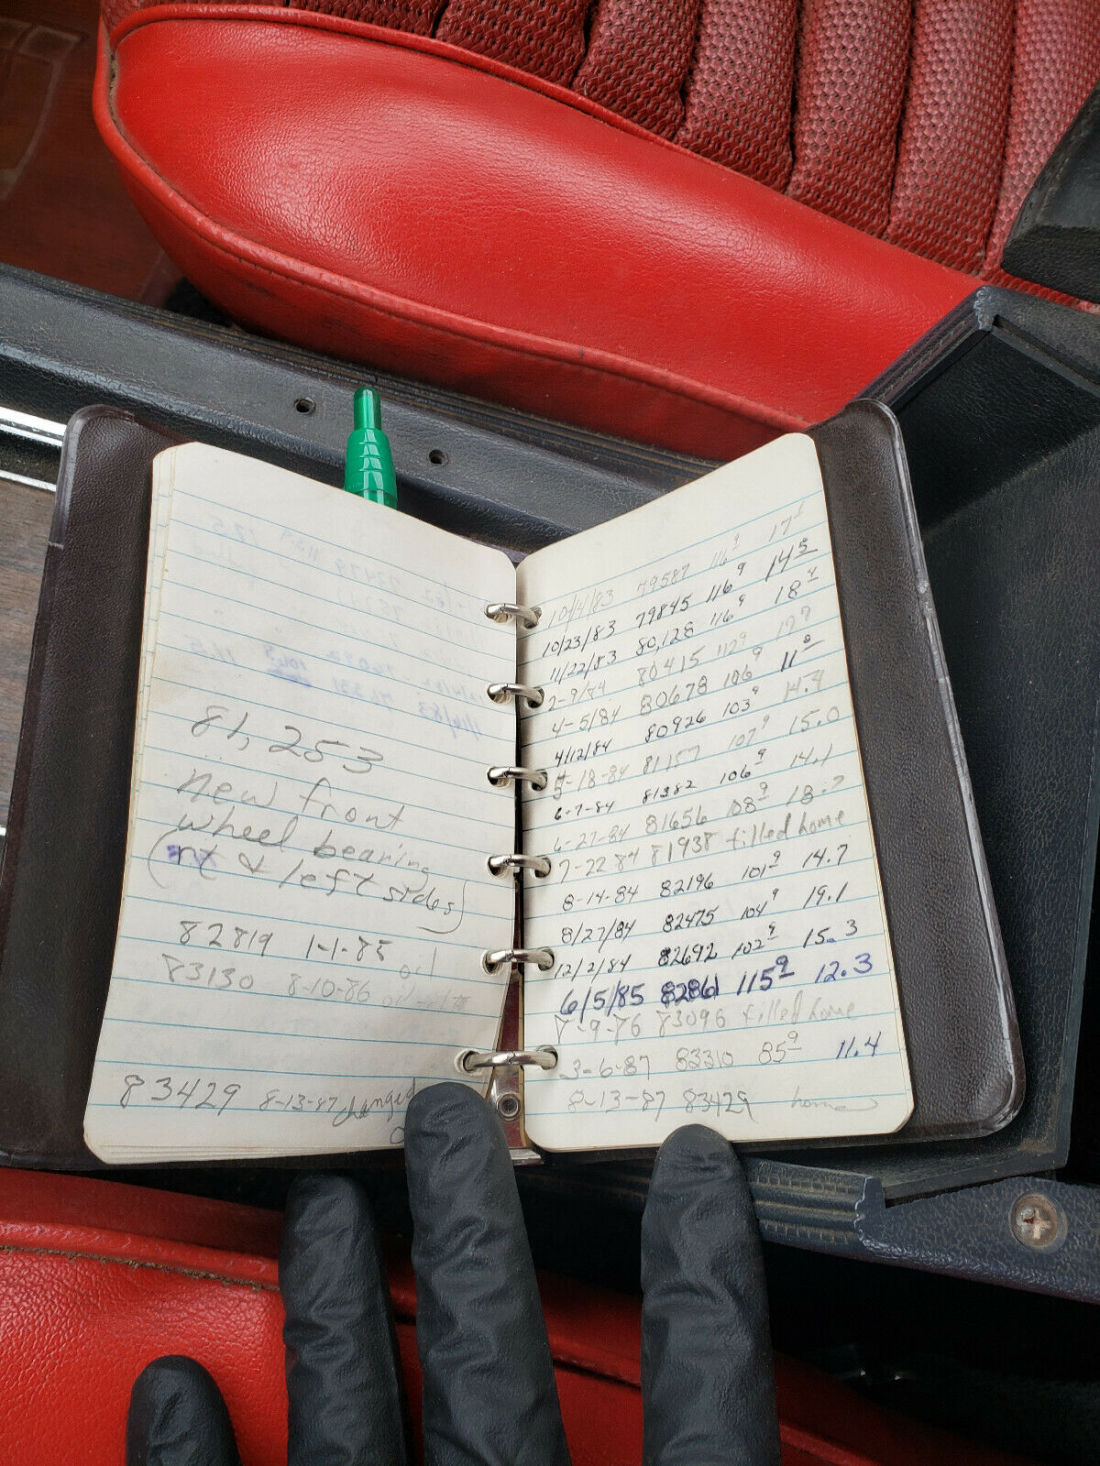 81,253
new front
wheel bearing
(rt & left sides)
82819 1-1-85 oil
83130 8-10-86 oil
83429 8-13-87 changed
10/4/83 79587 116⁹
10/23/83 79845 116⁹ 14⁵
11/22/83 80,128 116⁹ 18⁴
2-9/84 80415 112⁹
4-5/84 80678 106⁹ 11⁰
4/12/84 80926 103⁹ 14.4
5-18-84 81157 107⁹ 15.0
6-7-84 81382 106⁹ 14.1
6-27-84 81656 108⁹
7-22-84 81938 filled home
8-14-84 82196 101⁹ 14.7
8/27/84 82475 104⁹ 19.1
12/2/84 82692 102⁹ 15.3
6/5/85 82861 115⁹ 12.3
8-9-86 83096 filled home
3-6-87 83310 85⁹ 11.4
8-13-87 83429 home